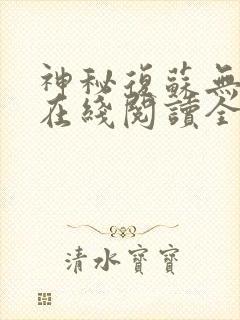 神秘復蘇無
在綫閱讀全
清水寶寶